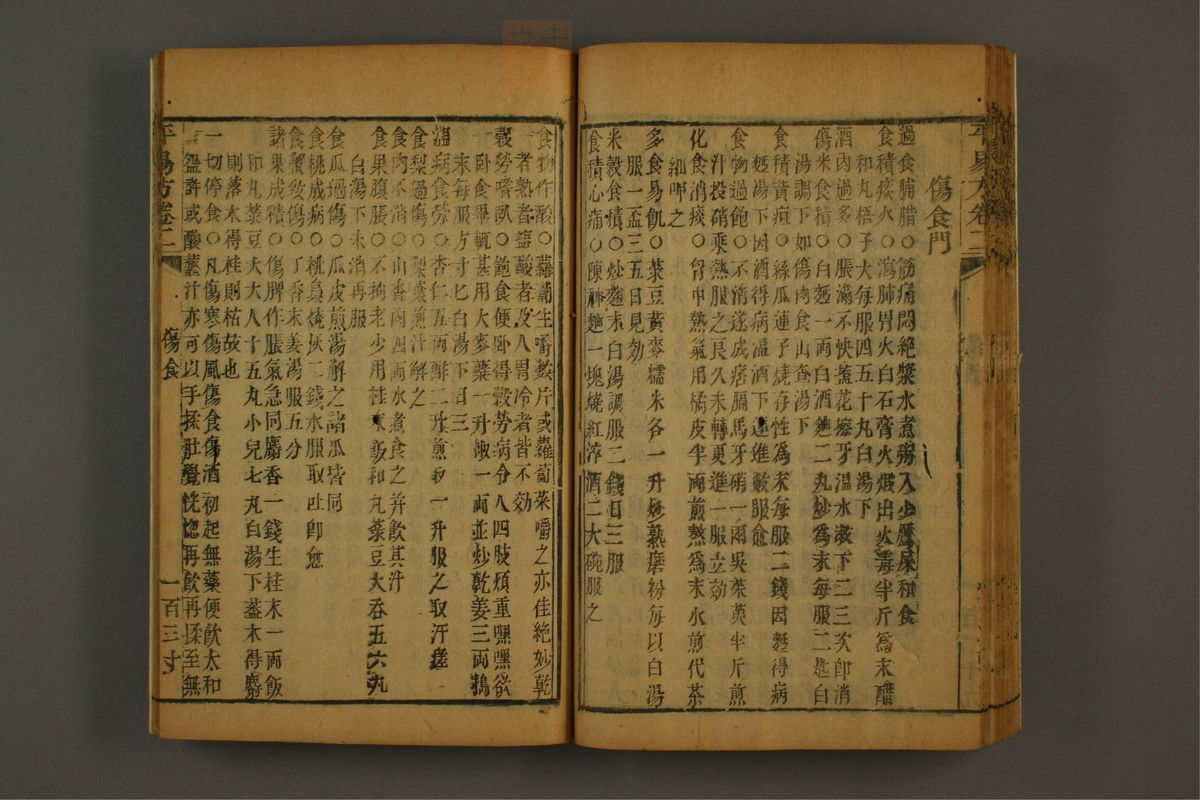 平易方卷二
傷食門
過食脯腊○筋痛悶絶漿水煮粥入少鷹屎和食
食積痰火○瀉肺胃火白石膏火煅出火毒半斤爲末醋
和丸梧子大每服四五十丸白湯下
酒肉過多○脹滿不快葢花擦牙温水漱下二三次卽消
傷米食積○白麵一兩白酒麯二丸炒爲末每服二匙白
湯調下如傷肉食山查湯下
食積黃疸○絲瓜連子燒存性爲末每服二錢因麪得病
麪湯下因酒得病温酒下連進數服愈
食物過飽○不消遂成痞膈馬牙硝一兩吳茱萸半斤煎
汁投硝乘熱服之良久未轉更進一服立効
化食消痰○胷中熱氣用橘皮半兩煎熬爲末水煎代茶
細呷之
多食易飢○菉豆黃麥糯米各一升炒熟磨粉每以白湯
服一盃三五日見効
米穀食積○炒麯末白湯調服二錢日三服
食積心痛○陳神麯一塊燒紅淬酒二大碗服之
食物作酸○蘿蔔生嚼數片或蘿蔔菜嚼之亦佳絶妙乾
者熟者鹽醃者及人胃冷者皆不効
穀勞嗜臥○飽食便臥得穀勞病令人四肢煩重嘿嘿欲
臥食畢輒甚用大麥蘗一升椒一兩並炒乾姜三兩搗
末每服方寸匕白湯下日三
温病食勞○杏仁五兩酢二升煎取一升服之取汗瘥
食梨過傷○梨葉煎汁解之
食肉不消○山查肉四兩水煮食之并飲其汁
食果腹脹○不拘老少用桂末飯和丸菉豆大吞五六丸
白湯下未消再服
食瓜過傷○瓜皮煎湯解之諸瓜皆同
食桃成病○桃梟燒灰二錢水服取吐卽愈
食蟹致傷○丁香末姜湯服五分
諸果成積○傷脾作脹氣急同麝香一錢生桂末一兩飯
和丸菉豆大大人十五丸小兒七丸白湯下葢木得麝
則落木得桂則枯故也
一切停食○凡傷寒傷風傷食傷酒初起無藥便飲太和
一盌許或酸虀汁亦可以手揉肚覺恍惚再飲再揉至無
平易方卷二
傷食
一百三寸